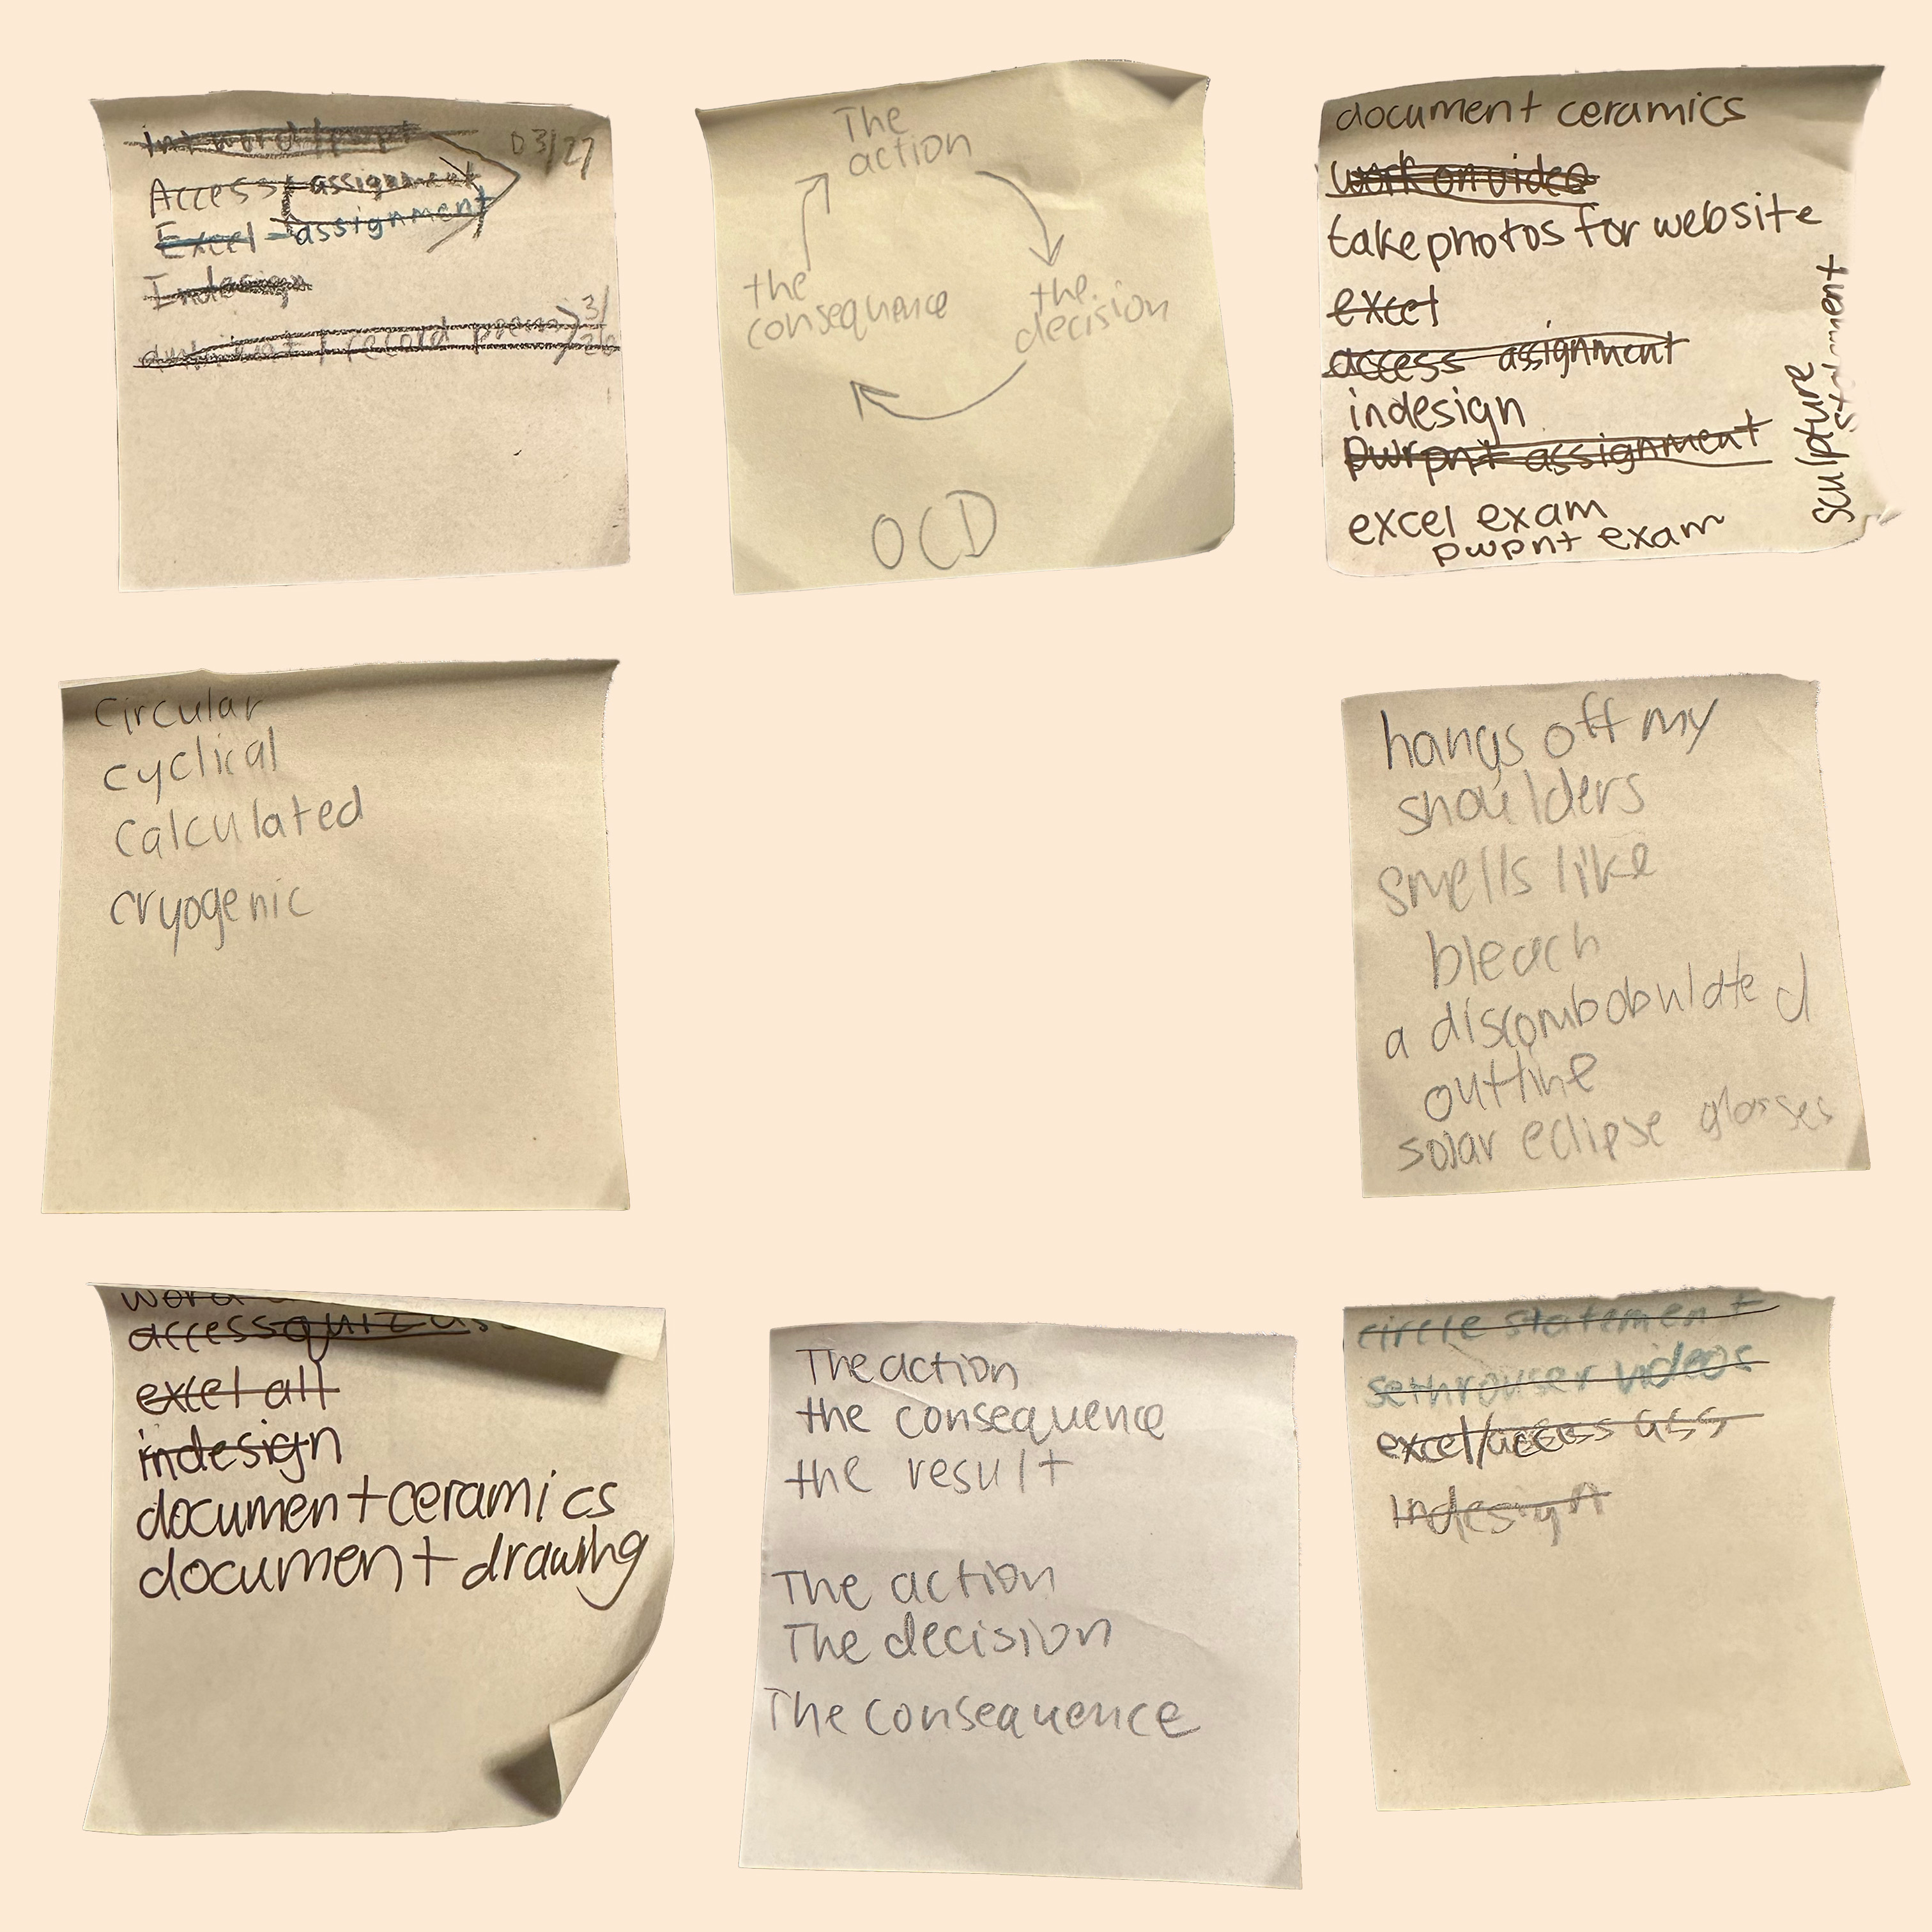 Int word / pwrpt
03/27
Access assignment
Excel - assignment
Indesign
record
3/
26
The
action
the
decision
the
consequence
OCD
document ceramics
work on video
take photos for website
excel
access assignment
indesign
pwrpnt assignment
excel exam
pwpnt exam
sculpture
statement
circular
cyclical
calculated
cryogenic
hangs off my
shoulders
smells like
bleach
a discombobulated
outline
solar eclipse glasses
word
access quiz
excel all
indesign
document ceramics
document drawing
The action
the consequence
the result
The action
The decision
The consequence
circle statement
sethrouser videos
excel/access ass
Indesign